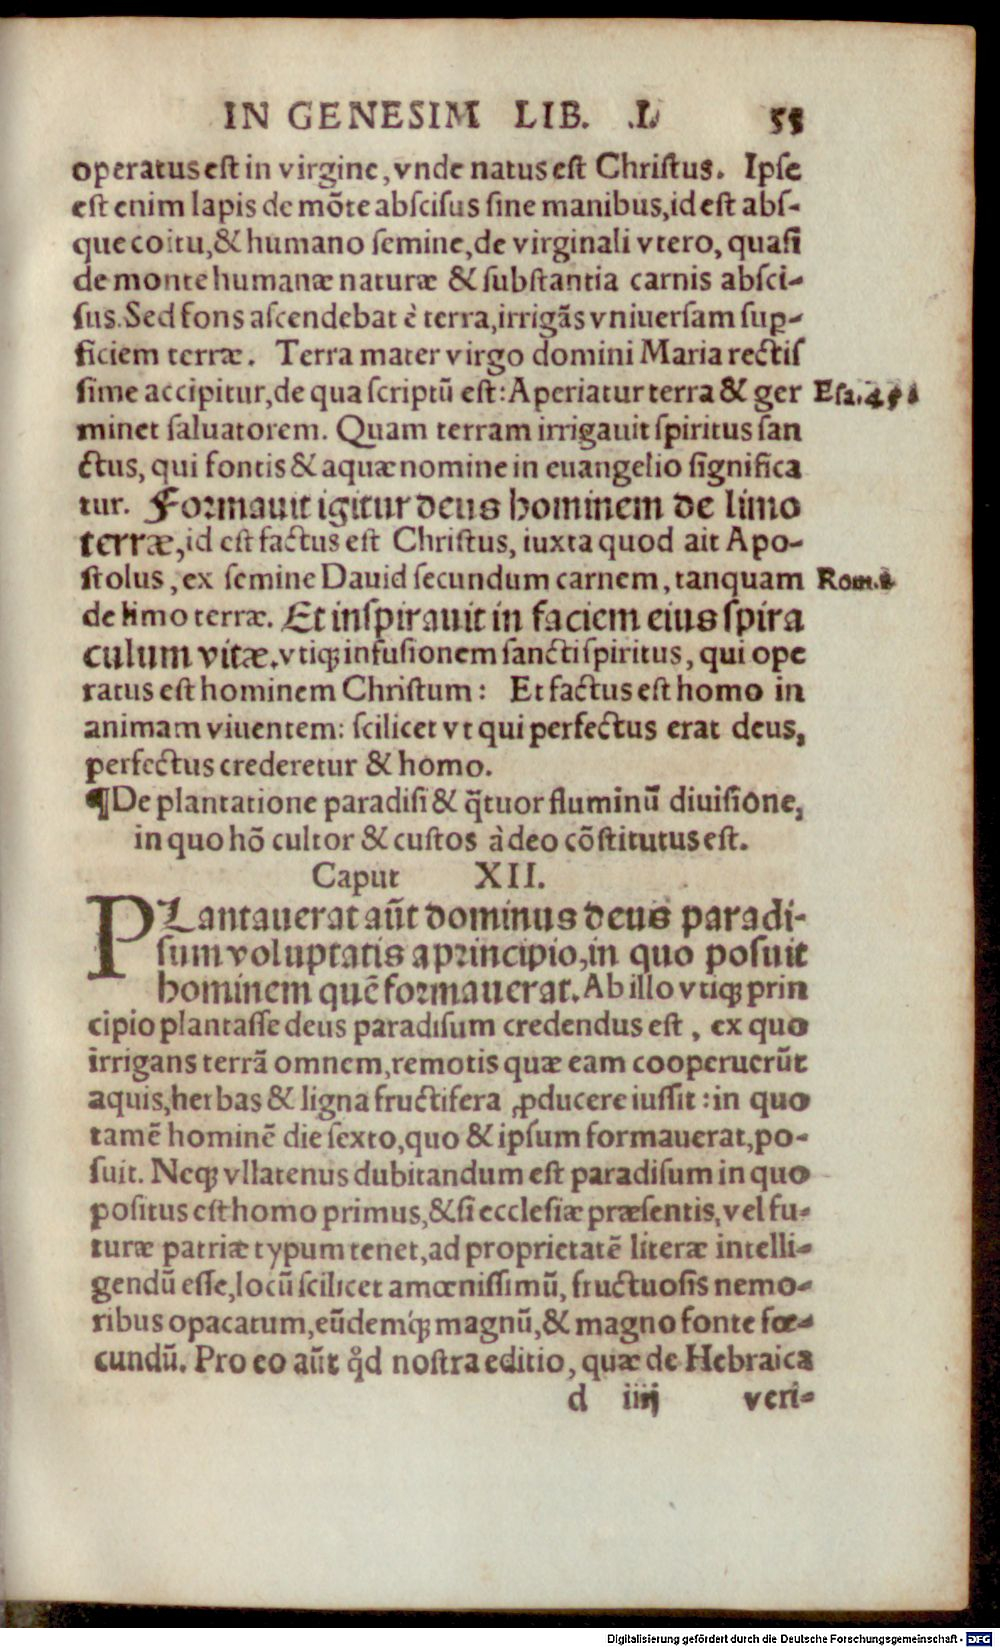 IN GENESIM LIB. .I. 55
operatus est in virgine, vnde natus est Christus. Ipse
est enim lapis de mõte abscisus sine manibus, id est abs-
que coitu, & humano semine, de virginali vtero, quasi
de monte humanæ naturæ & substantia carnis absci-
sus. Sed fons ascendebat è terra, irrigãs vniuersam suꝑ-
ficiem terræ. Terra mater virgo domini Maria rectis
sime accipitur, de qua scriptũ est: Aperiatur terra & ger Esa. 45.
minet saluatorem. Quam terram irrigauit spiritus san
ctus, qui fontis & aquæ nomine in euangelio significa
tur. Formauit igitur deus hominem de limo
terræ, id est factus est Christus, iuxta quod ait Apo-
stolus, ex semine Dauid secundum carnem, tanquam Rom.
de limo terræ. Et inspirauit in faciem eius spira
culum vitæ. vtiqꝫ infusionem sancti spiritus, qui ope
ratus est hominem Christum: Et factus est homo in
animam viuentem: scilicet vt qui perfectus erat deus,
perfectus crederetur & homo.
¶De plantatione paradisi & q̃tuor fluminũ diuisione,
in quo hõ cultor & custos à deo cõstitutus est.
Caput XII.
PLantauerat aũt dominus deus paradi-
sum voluptatis a principio, in quo posuit
hominem quẽ formauerat. Ab illo vtiqꝫ prin
cipio plantasse deus paradisum credendus est, ex quo
irrigans terrã omnem, remotis quæ eam cooperuerũt
aquis, herbas & ligna fructifera ꝓducere iussit: in quo
tamẽ hominẽ die sexto, quo & ipsum formauerat, po-
suit. Neqꝫ vllatenus dubitandum est paradisum in quo
positus est homo primus, & si ecclesiæ præsentis, vel fu-
turæ patriæ typum tenet, ad proprietatẽ literæ intelli-
gendũ esse, locũ scilicet amœnissimũ, fructuosis nemo-
ribus opacatum, eũdemq́ꝫ magnũ, & magno fonte fœ-
cundũ. Pro eo aũt qd̉ nostra editio, quæ de Hebraica
d iiij veri-
Digitalisierung gefördert durch die Deutsche Forschungsgemeinschaft - DFG